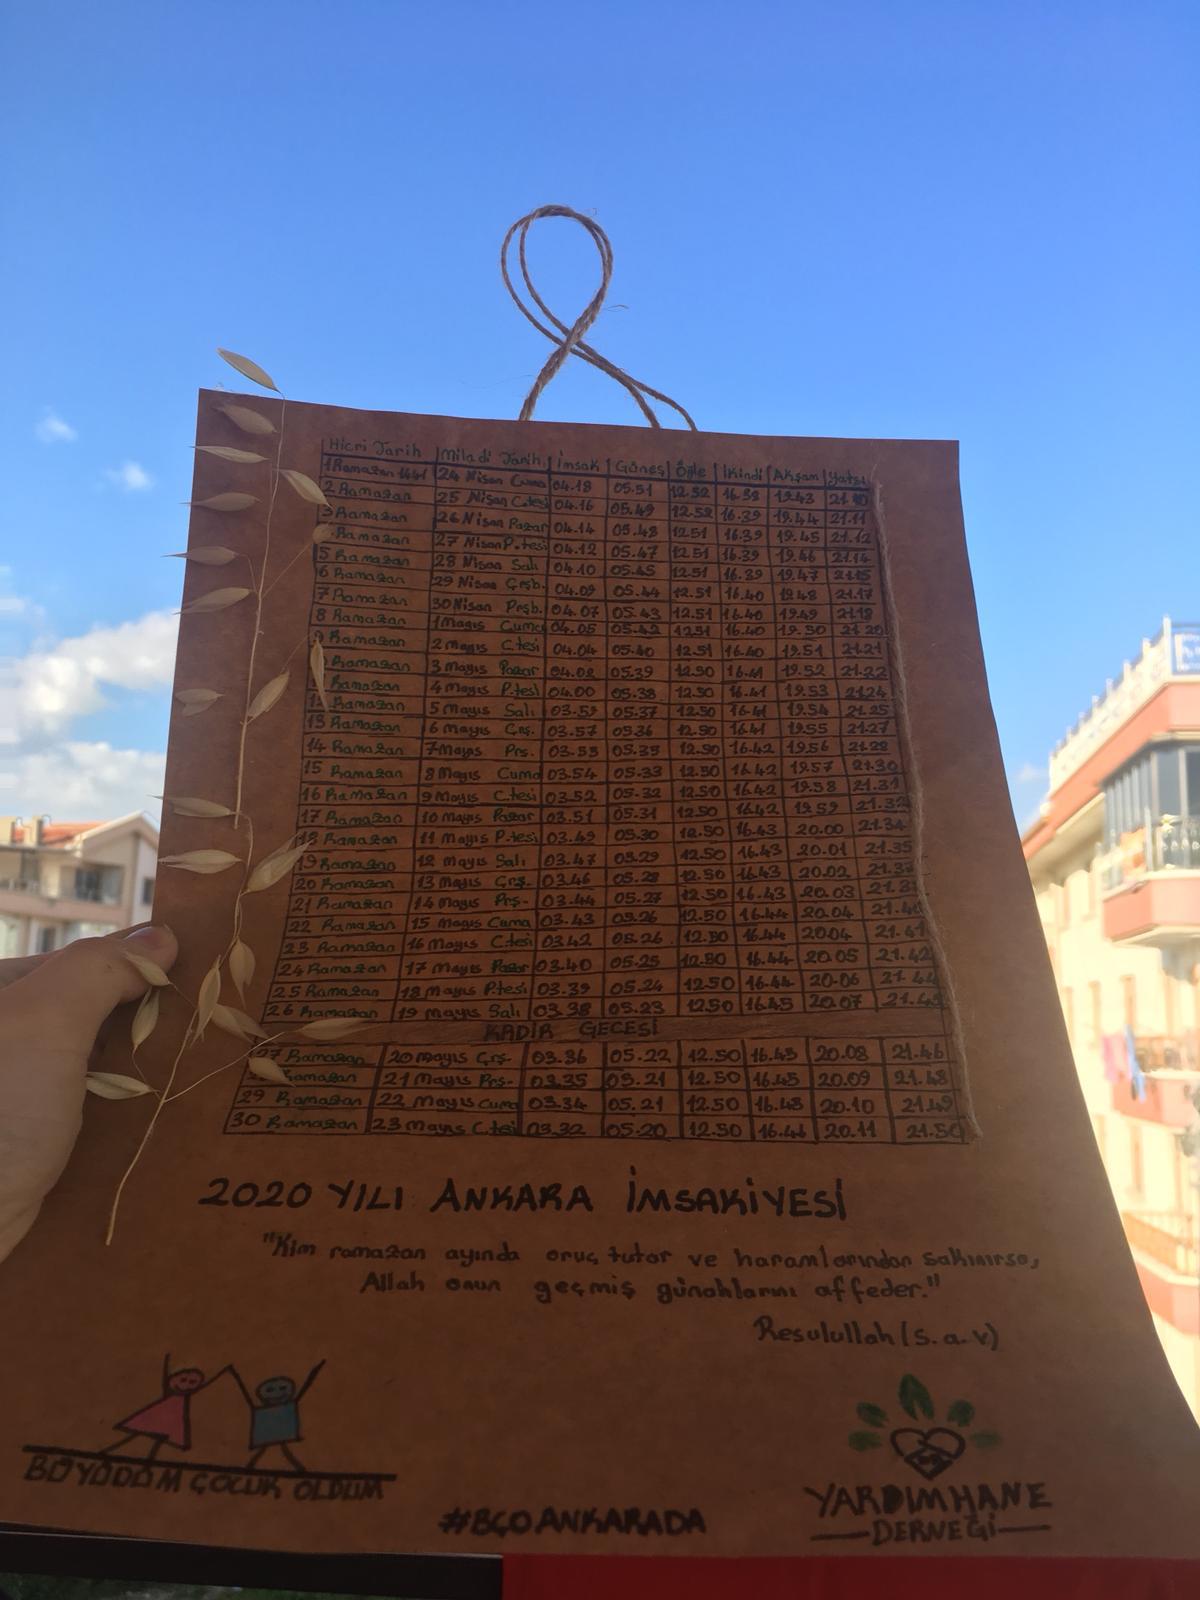 Hicri Tarih Miladi Tarih İmsak Güneş Öğle İkindi Akşam Yatsı
1 Ramazan 1441 24 Nisan Cuma 04.18 05.51 12.52 16.38 19.43 21.10
2 Ramazan 25 Nisan C.tesi 04.16 05.49 12.52 16.39 19.44 21.11
3 Ramazan 26 Nisan Pazar 04.14 05.48 12.51 16.39 19.45 21.12
Ramazan 27 Nisan P.tesi 04.12 05.47 12.51 16.39 19.46 21.14
5 Ramazan 28 Nisan Salı 04.10 05.45 12.51 16.39 19.47 21.15
6 Ramazan 29 Nisan Çrşb. 04.09 05.44 12.51 16.40 19.48 21.17
7 Ramazan 30 Nisan Prşb. 04.07 05.43 12.51 16.40 19.49 21.18
8 Ramazan 1 Mayıs Cuma 04.05 05.42 12.51 16.40 19.50 21.20
9 Ramazan 2 Mayıs C.tesi 04.04 05.40 12.51 16.40 19.51 21.21
Ramazan 3 Mayıs Pazar 04.02 05.39 12.50 16.41 19.52 21.22
Ramazan 4 Mayıs P.tesi 04.00 05.38 12.50 16.41 19.53 21.24
Ramazan 5 Mayıs Salı 03.59 05.37 12.50 16.41 19.54 21.25
13 Ramazan 6 Mayıs Çrş. 03.57 05.36 12.50 16.41 19.55 21.27
14 Ramazan 7 Mayıs Prş. 03.55 05.35 12.50 16.42 19.56 21.28
15 Ramazan 8 Mayıs Cuma 03.54 05.33 12.50 16.42 19.57 21.30
16 Ramazan 9 Mayıs C.tesi 03.52 05.32 12.50 16.42 19.58 21.31
17 Ramazan 10 Mayıs Pazar 03.51 05.31 12.50 16.42 19.59 21.32
18 Ramazan 11 Mayıs P.tesi 03.49 05.30 12.50 16.43 20.00 21.34
19 Ramazan 12 Mayıs Salı 03.47 05.29 12.50 16.43 20.01 21.35
20 Ramazan 13 Mayıs Çrş. 03.46 05.28 12.50 16.43 20.02
21 Ramazan 14 Mayıs Prş. 03.44 05.27 12.50 16.43 20.03
22 Ramazan 15 Mayıs Cuma 03.43 05.26 12.50 16.44 20.04
23 Ramazan 16 Mayıs C.tesi 03.42 05.26 12.50 16.44 20.04 21.41
24 Ramazan 17 Mayıs Pazar 03.40 05.25 12.50 16.44 20.05 21.42
25 Ramazan 18 Mayıs P.tesi 03.39 05.24 12.50 16.44 20.06 21.44
26 Ramazan 19 Mayıs Salı 03.38 05.23 12.50 16.45 20.07 21.45
KADİR GECESİ
27 Ramazan 20 Mayıs Çrş. 03.36 05.22 12.50 16.45 20.08 21.46
Ramazan 21 Mayıs Prş. 03.35 05.21 12.50 16.45 20.09 21.48
29 Ramazan 22 Mayıs Cuma 03.34 05.21 12.50 16.45 20.10 21.49
30 Ramazan 23 Mayıs C.tesi 03.32 05.20 12.50 16.46 20.11 21.50
2020 YILI ANKARA İMSAKİYESİ
"Kim ramazan ayında oruç tutar ve haramlarından sakınırsa,
Allah onun geçmiş günahlarını affeder."
Resulullah (s.a.v)
BÜYÜDÜM ÇOCUK OLDUM
#BÇOANKARADA
YARDIMHANE
DERNEĞİ